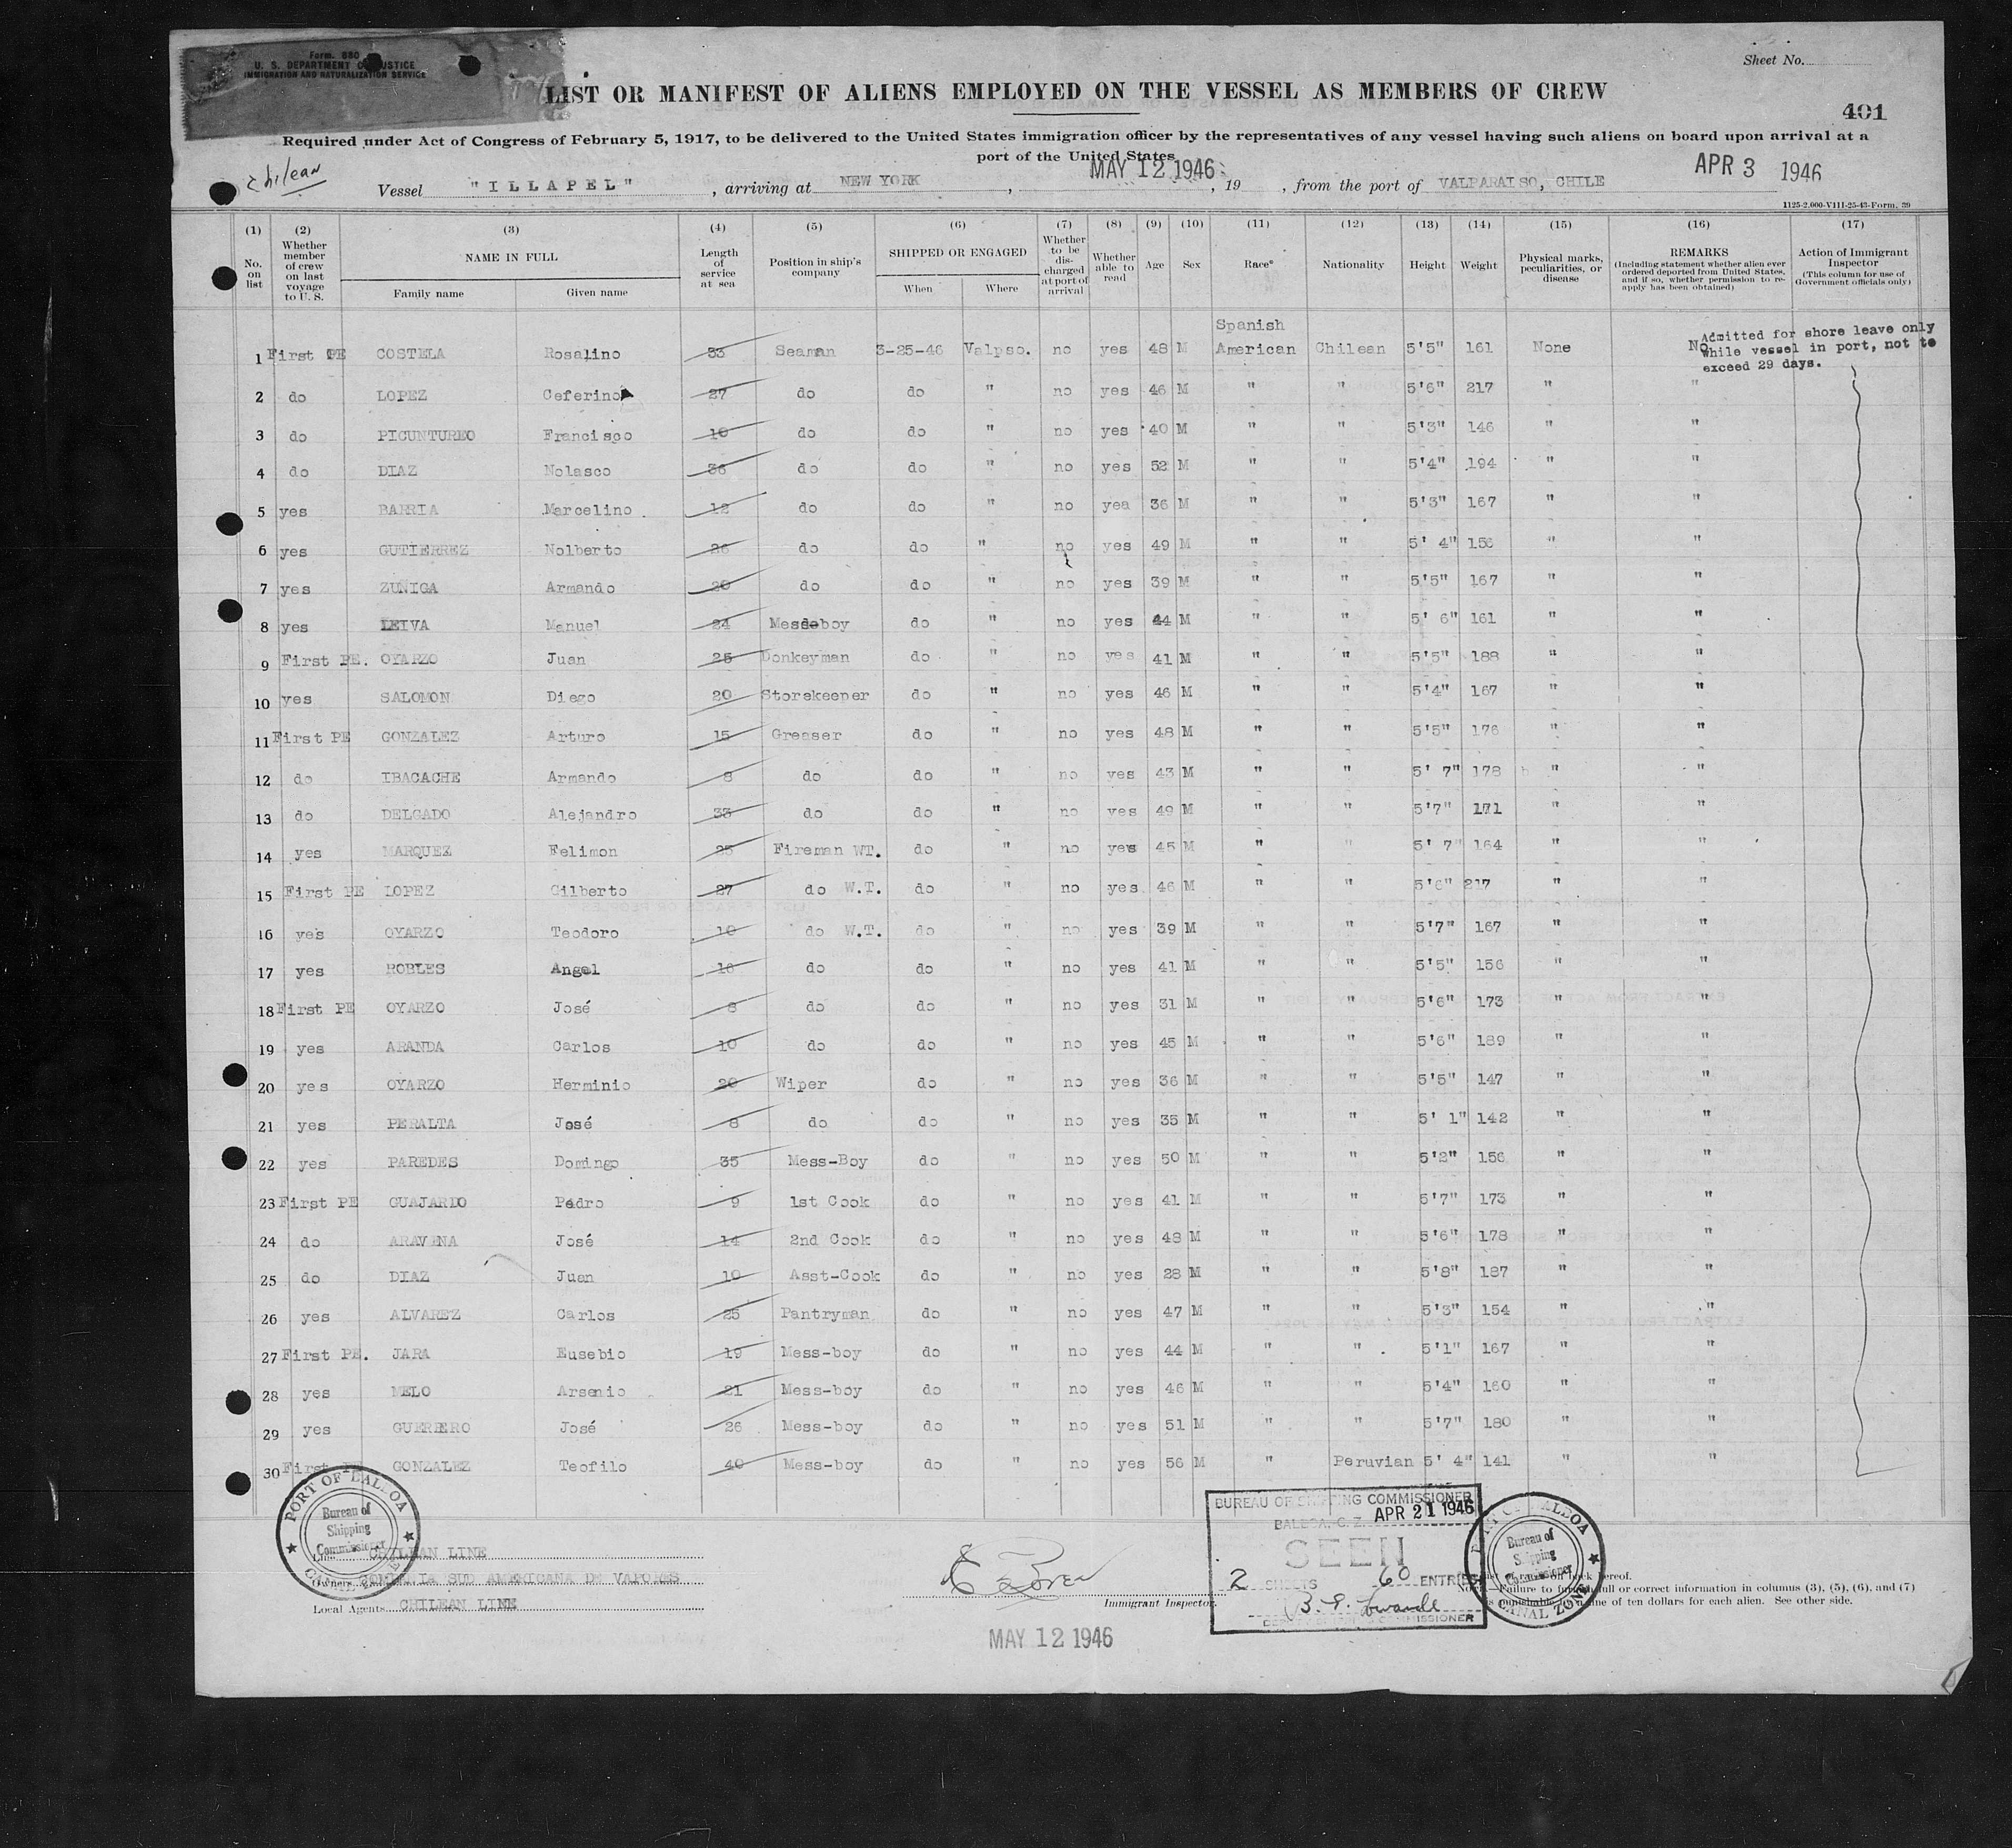 Form. 680
U. S. DEPARTMENT OF JUSTICE
IMMIGRATION AND NATURALIZATION SERVICE
Sheet No.
LIST OR MANIFEST OF ALIENS EMPLOYED ON THE VESSEL AS MEMBERS OF CREW
401
Required under Act of Congress of February 5, 1917, to be delivered to the United States immigration officer by the representatives of any vessel having such aliens on board upon arrival at a
port of the United States
Chilean
Vessel "ILLAPEL", arriving at NEW YORK, MAY 12 1946, 19 , from the port of VALPARAISO, CHILE APR 3 1946
1125-2,000-VIII-25-43-Form, 39
(1) (2) (3) (4) (5) (6) (7) (8) (9) (10) (11) (12) (13) (14) (15) (16) (17)
No. on list
Whether member of crew on last voyage to U. S.
NAME IN FULL
Family name Given name
Length of service at sea
Position in ship's company
SHIPPED OR ENGAGED
When Where
Whether to be discharged at port of arrival
Whether able to read
Age
Sex
Race*
Nationality
Height
Weight
Physical marks, peculiarities, or disease
REMARKS
(Including statement whether alien ever ordered deported from United States, and if so, whether permission to reapply has been obtained)
Action of Immigrant Inspector
(This column for use of Government officials only)
1 First PE COSTELA Rosalino 33 Seaman 3-25-46 Valpso. no yes 48 M Spanish American Chilean 5'5" 161 None No
Admitted for shore leave only
while vessel in port, not to
exceed 29 days.
2 do LOPEZ Ceferino 27 do do " no yes 46 M " " 5'6" 217 " "
3 do PICUNTUREO Francisco 10 do do " no yes 40 M " " 5'3" 146 " "
4 do DIAZ Nolasco 36 do do " no yes 52 M " " 5'4" 194 " "
5 yes BARRIA Marcelino 12 do do " no yea 36 M " " 5'3" 167 " "
6 yes GUTIERREZ Nolberto 26 do do " no yes 49 M " " 5' 4" 156 " "
7 yes ZUNIGA Armando 20 do do " no yes 39 M " " 5'5" 167 " "
8 yes LEIVA Manuel 24 Mess-boy do " no yes 44 M " " 5' 6" 161 " "
9 First PE. OYARZO Juan 25 Donkeyman do " no yes 41 M " " 5'5" 188 " "
10 yes SALOMON Diego 20 Storekeeper do " no yes 46 M " " 5'4" 167 " "
11 First PE GONZALEZ Arturo 15 Greaser do " no yes 48 M " " 5'5" 176 " "
12 do IBACACHE Armando 8 do do " no yes 43 M " " 5' 7" 178 " "
13 do DELGADO Alejandro 33 do do " no yes 49 M " " 5'7" 171 " "
14 yes MARQUEZ Felimon 25 Fireman WT. do " no yes 45 M " " 5' 7" 164 " "
15 First PE LOPEZ Gilberto 27 do W.T. do " no yes 46 M " " 5'6" 217 " "
16 yes OYARZO Teodoro 10 do W.T. do " no yes 39 M " " 5'7" 167 " "
17 yes ROBLES Angel 16 do do " no yes 41 M " " 5'5" 156 " "
18 First PE OYARZO José 8 do do " no yes 31 M " " 5'6" 173 " "
19 yes ARANDA Carlos 10 do do " no yes 45 M " " 5'6" 189 " "
20 yes OYARZO Herminio 20 Wiper do " no yes 36 M " " 5'5" 147 " "
21 yes PERALTA José 8 do do " no yes 35 M " " 5' 1" 142 " "
22 yes PAREDES Domingo 35 Mess-Boy do " no yes 50 M " " 5'2" 156 " "
23 First PE GUAJARDO Pedro 9 1st Cook do " no yes 41 M " " 5'7" 173 " "
24 do ARAVENA José 14 2nd Cook do " no yes 48 M " " 5'6" 178 " "
25 do DIAZ Juan 10 Asst-Cook do " no yes 28 M " " 5'8" 187 " "
26 yes ALVAREZ Carlos 25 Pantryman do " no yes 47 M " " 5'3" 154 " "
27 First PE. JARA Eusebio 19 Mess-boy do " no yes 44 M " " 5'1" 167 " "
28 yes MELO Arsenio 21 Mess-boy do " no yes 46 M " " 5'4" 160 " "
29 yes GUERRERO José 26 Mess-boy do " no yes 51 M " " 5'7" 180 " "
30 First PE GONZALEZ Teofilo 40 Mess-boy do " no yes 56 M " Peruvian 5' 4" 141 " "
PORT OF BALBOA
Bureau of Shipping Commissioner
CANAL ZONE
Line CHILEAN LINE
Owners COMPANIA SUD AMERICANA DE VAPORES
Local Agents CHILEAN LINE
Immigrant Inspector.
MAY 12 1946
BUREAU OF SHIPPING COMMISSIONER
BALBOA, C. Z. APR 21 1946
SEEN
2 SHEETS 60 ENTRIES
DEPUTY SHIPPING COMMISSIONER
PORT OF BALBOA
Bureau of Shipping Commissioner
CANAL ZONE
back hereof.
Failure to furnish full or correct information in columns (3), (5), (6), and (7)
is punishable fine of ten dollars for each alien. See other side.